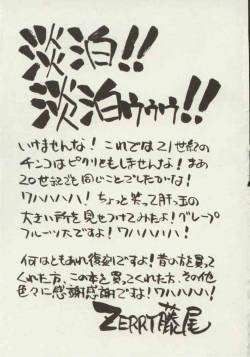 淡泊!!
淡泊ゥゥゥ!!
いけませんな! これでは21世紀の
チンコはピクリともしませんな! まあ
20世紀でも同じことでしたがな!
ワハハハハ! ちょっと笑って肝っ玉の
大きい所を見せつけてみたよ! グレープ
フルーツ大ですよ! ワハハハハ!
何はともあれ復刻ですよ! 昔の方を買って
くれた方、この本を買ってくれた方、その他
色々に感謝感謝ですよ! ワハハハハ!
ZERRY藤尾